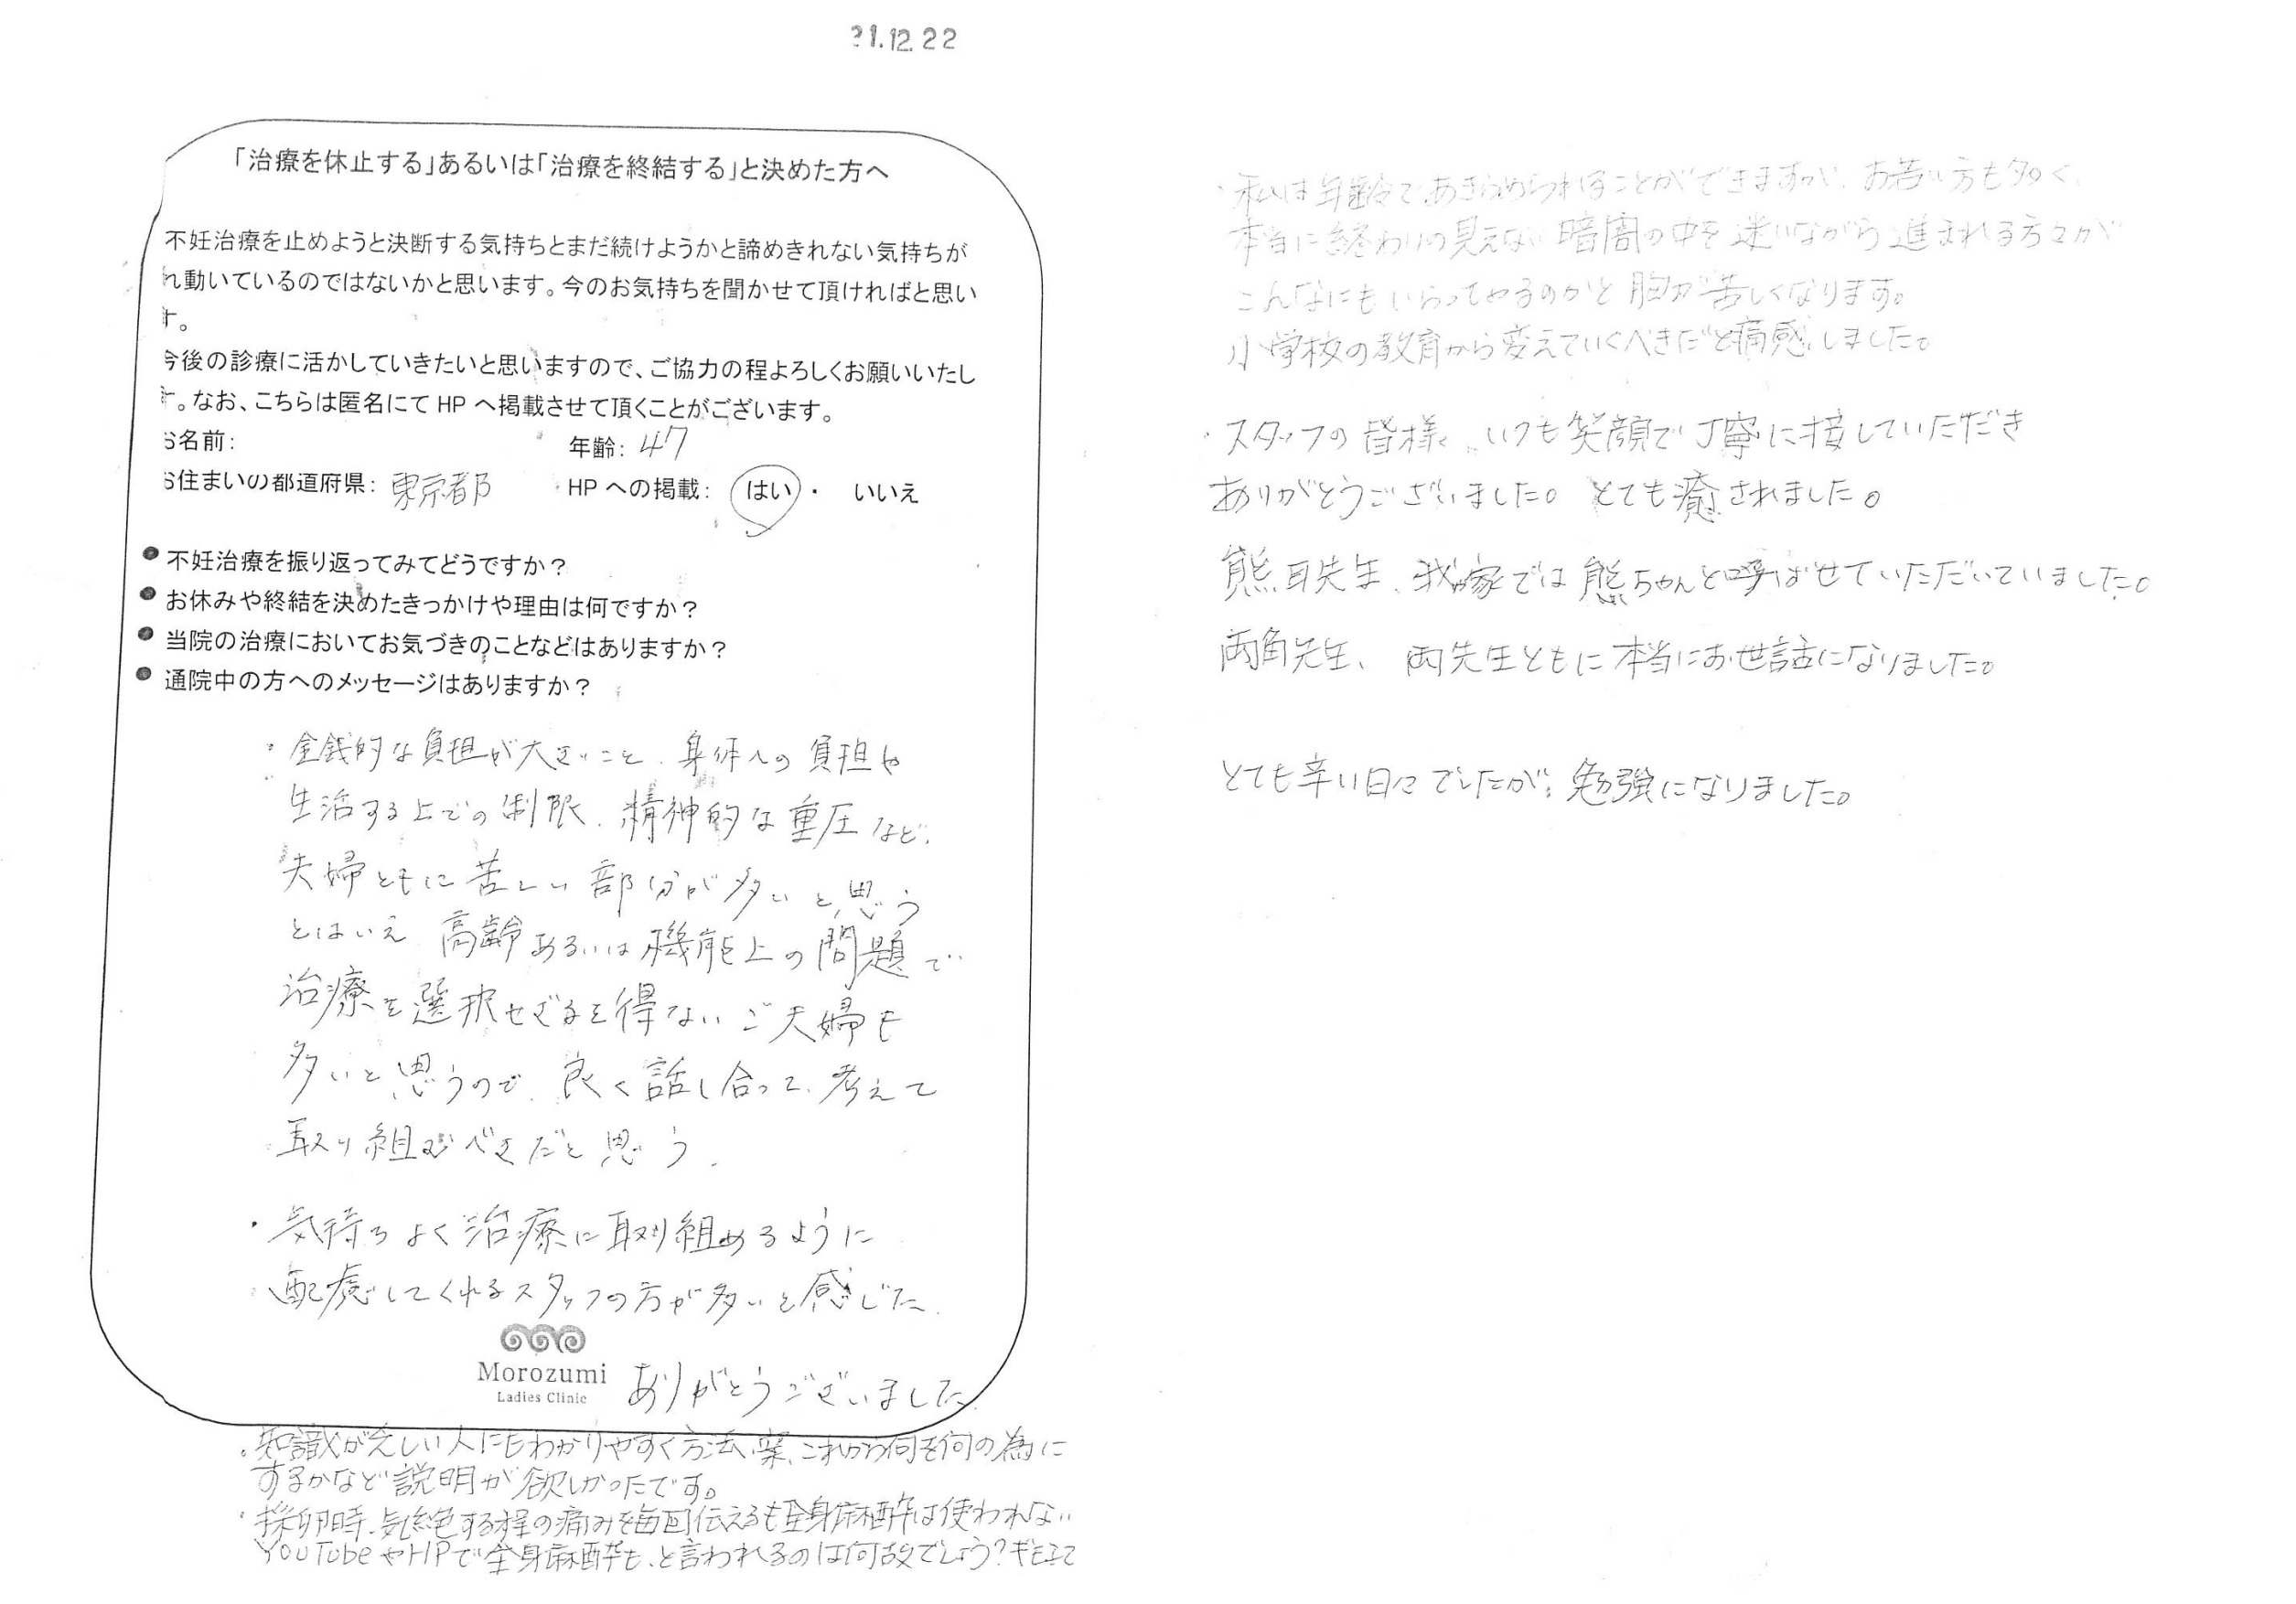 21.12.22
「治療を休止する」あるいは「治療を終結する」と決めた方へ
不妊治療を止めようと決断する気持ちとまだ続けようかと諦めきれない気持ちが
れ動いているのではないかと思います。今のお気持ちを聞かせて頂ければと思い
す。
今後の診療に活かしていきたいと思いますので、ご協力の程よろしくお願いいたし
す。なお、こちらは匿名にて HP へ掲載させて頂くことがございます。
お名前: 年齢: 47
お住まいの都道府県: 東京都 HP への掲載: はい ・ いいえ
● 不妊治療を振り返ってみてどうですか?
● お休みや終結を決めたきっかけや理由は何ですか?
● 当院の治療においてお気づきのことなどはありますか?
● 通院中の方へのメッセージはありますか?
・金銭的な負担が大きいこと、身体への負担や
生活する上での制限、精神的な重圧など、
夫婦ともに苦しい部分が多いと思う
とはいえ 高齢あるいは機能上の問題で
治療を選択せざるを得ないご夫婦も
多いと思うので、良く話し合って、考えて
取り組むべきだと思う.
・気持ちよく治療に取り組めるように
配慮してくれるスタッフの方が多いと感じた.
Morozumi
Ladies Clinic
ありがとうございました.
・知識が乏しい人にもわかりやすく方法、薬、これから何を何の為に
するかなど説明が欲しかったです。
・採卵時、気絶する程の痛みを毎回伝えるも全身麻酔は使われない
YouTubeやHPで全身麻酔も、と言われるのは何故でしょう?
・私は年齢であきらめられることができますが、お若い方も多く、
本当に終わりの見えない暗闇の中を迷いながら進まれる方々が
こんなにもいらってゃるのかと胸が苦しくなります。
小学校の教育から変えていくべきだと痛感しました。
・スタッフの皆様、いつも笑顔で丁寧に接していただき
ありがとうございました。とても癒されました。
熊耳先生、我が家では熊ちゃんと呼ばせていただいていました。
両角先生、両先生ともに本当にお世話になりました。
とても辛い日々でしたが、勉強になりました。